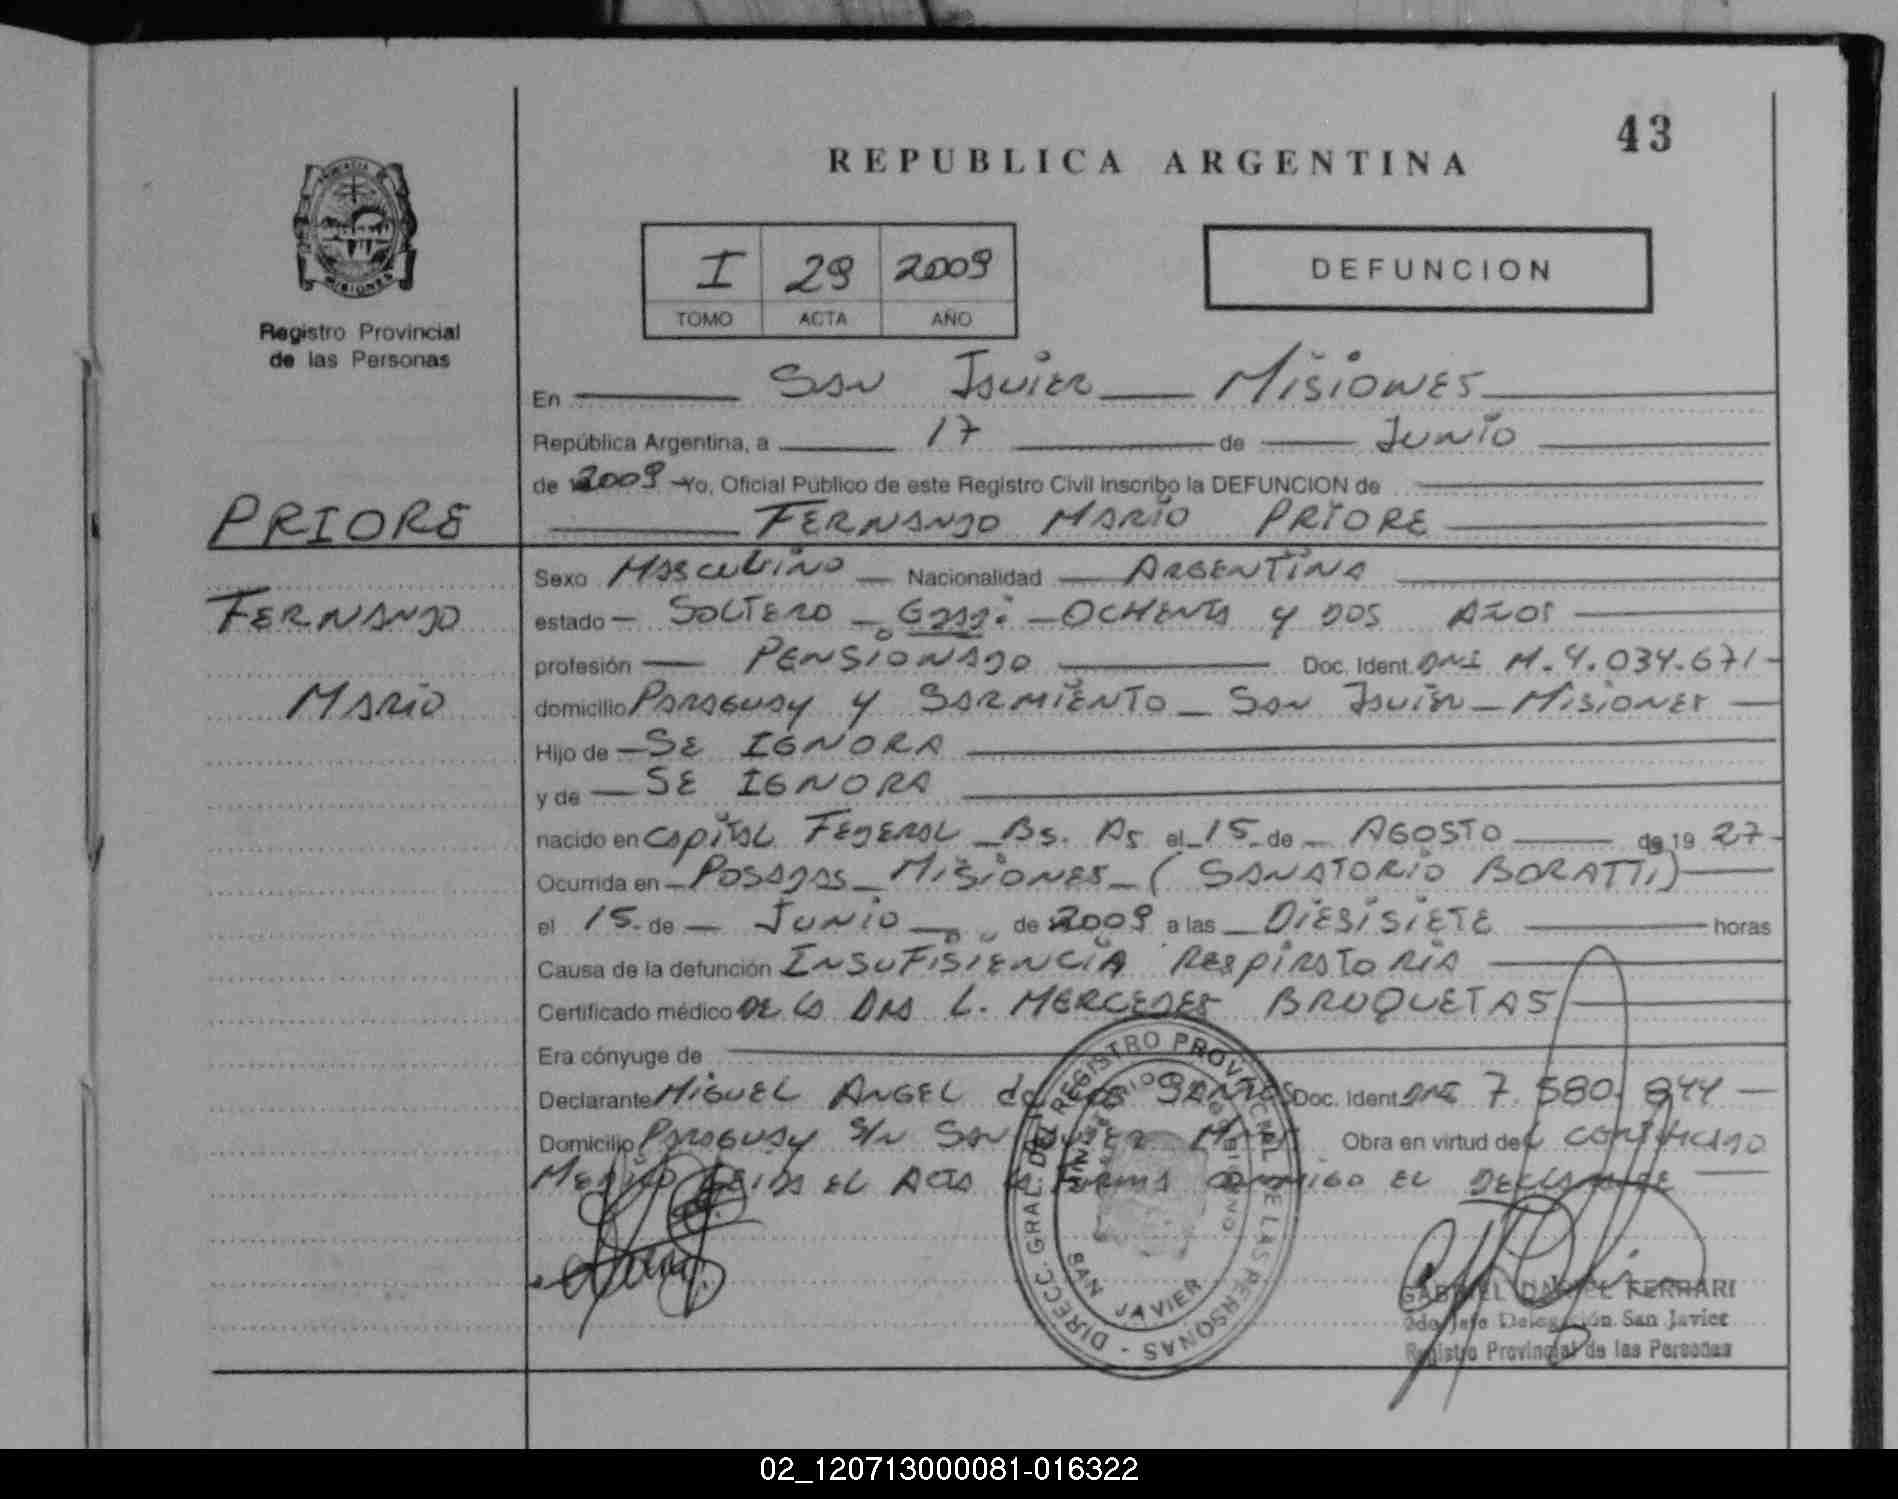 43
REPUBLICA ARGENTINA
PROVINCIA DE
MISIONES
Registro Provincial
de las Personas
I 29 2009
TOMO ACTA AÑO
DEFUNCION
En San Javier Misiones
República Argentina, a 17 de Junio
de 2009 Yo, Oficial Público de este Registro Civil inscribo la DEFUNCION de
PRIORE
FERNANDO MARIO PRIORE
Sexo Masculino Nacionalidad ARGENTINA
FERNANDO
estado SOLTERO Edad: OCHENTA y DOS AÑOS
profesión PENSIONADO Doc. Ident. DNI M. 4.034.671
MARIO
domicilio PARAGUAY y SARMIENTO San Javier Misiones
Hijo de SE IGNORA
y de SE IGNORA
nacido en Capital FEDERAL Bs. As el 15 de AGOSTO de 19 27
Ocurrida en POSADAS MISIONES (SANATORIO BORATTI)
el 15 de JUNIO de 2009 a las DIESISIETE horas
Causa de la defunción INSUFISIENCIA RESPIRATORIA
Certificado médico DE LA DRA L. MERCEDES BRUQUETAS
Era cónyuge de
Declarante MIGUEL ANGEL dos SANTOS Doc. Ident DNI 7.580.844
Domicilio PARAGUAY S/N SAN JAVIER Obra en virtud del CERTIFICADO
MEDICO LEIDA EL ACTA LA FIRMA CONMIGO EL DECLARANTE
DIRECC. GRAL. DEL REGISTRO PROVINCIAL DE LAS PERSONAS -
MINISTERIO DE GOBIERNO
SAN JAVIER
GABRIEL DANIEL FERRARI
2do Jefe Delegación San Javier
Registro Provincial de las Personas
02_120713000081-016322